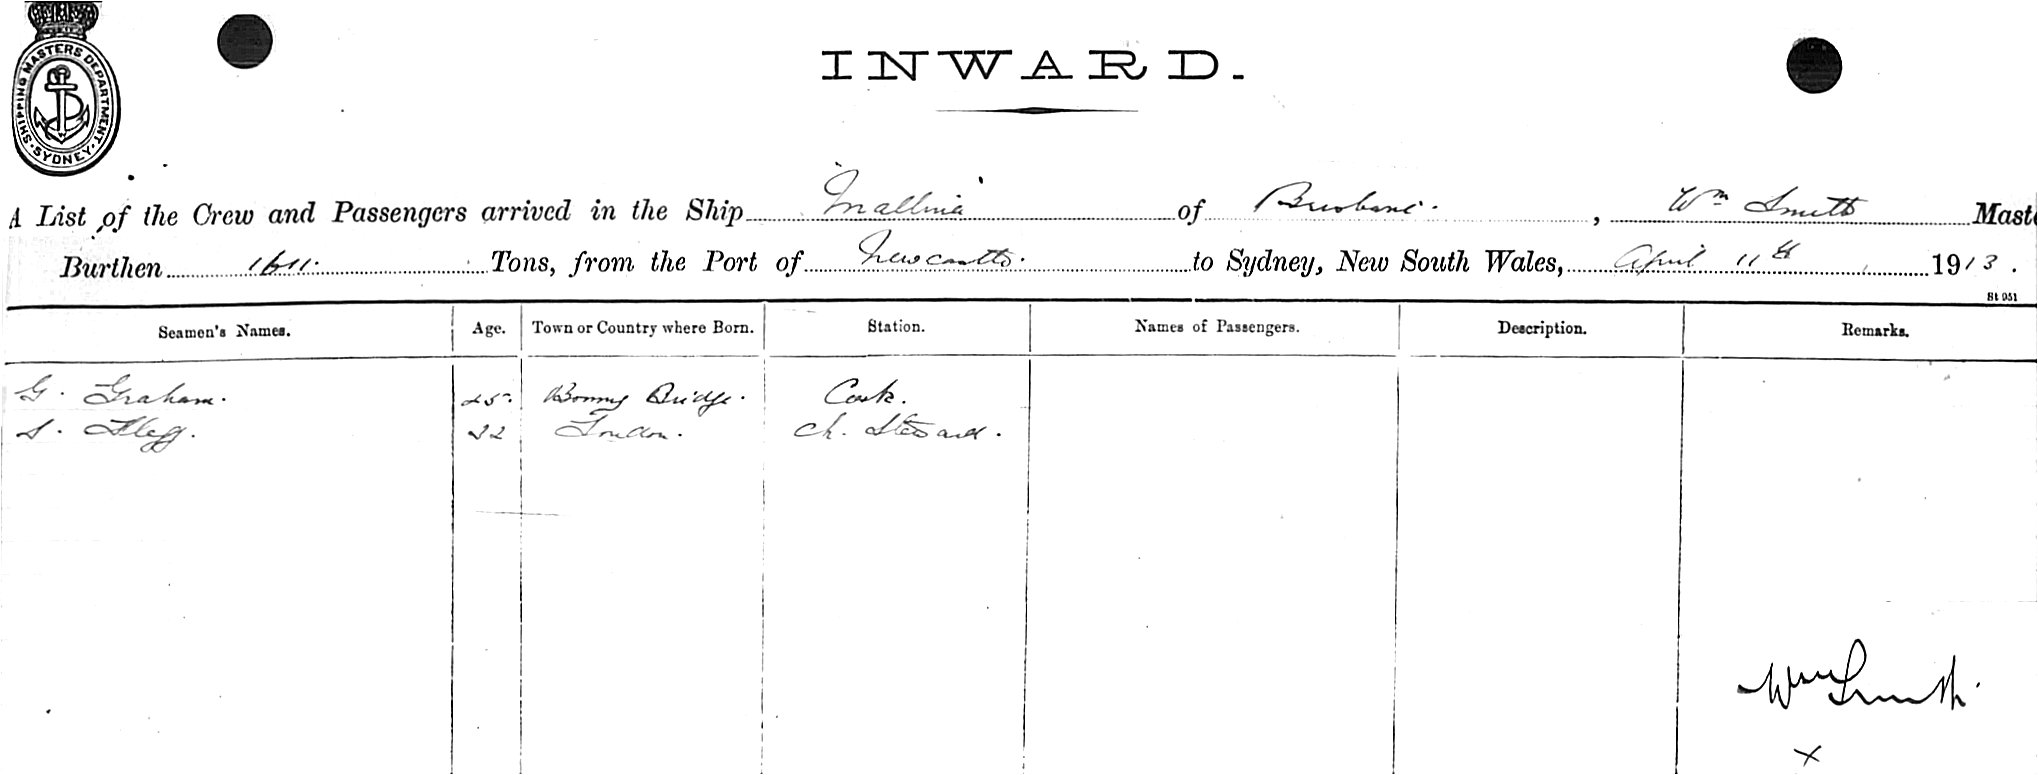 SHIPPING MASTERS DEPARTMENT. SYDNEY.
INWARD.
A List of the Crew and Passengers arrived in the Ship "Mallina" of Brisbane. , Wm Smith Maste
Burthen 1611. Tons, from the Port of Newcastle. to Sydney, New South Wales, April 11th 1913.
St 951
Seamen's Names. Age. Town or Country where Born. Station. Names of Passengers. Description. Remarks.
G. Graham. 25. Bonny Bridge. Cook.
S. Flegg. 22 London. Ch. Steward.
Wm Smith.
x